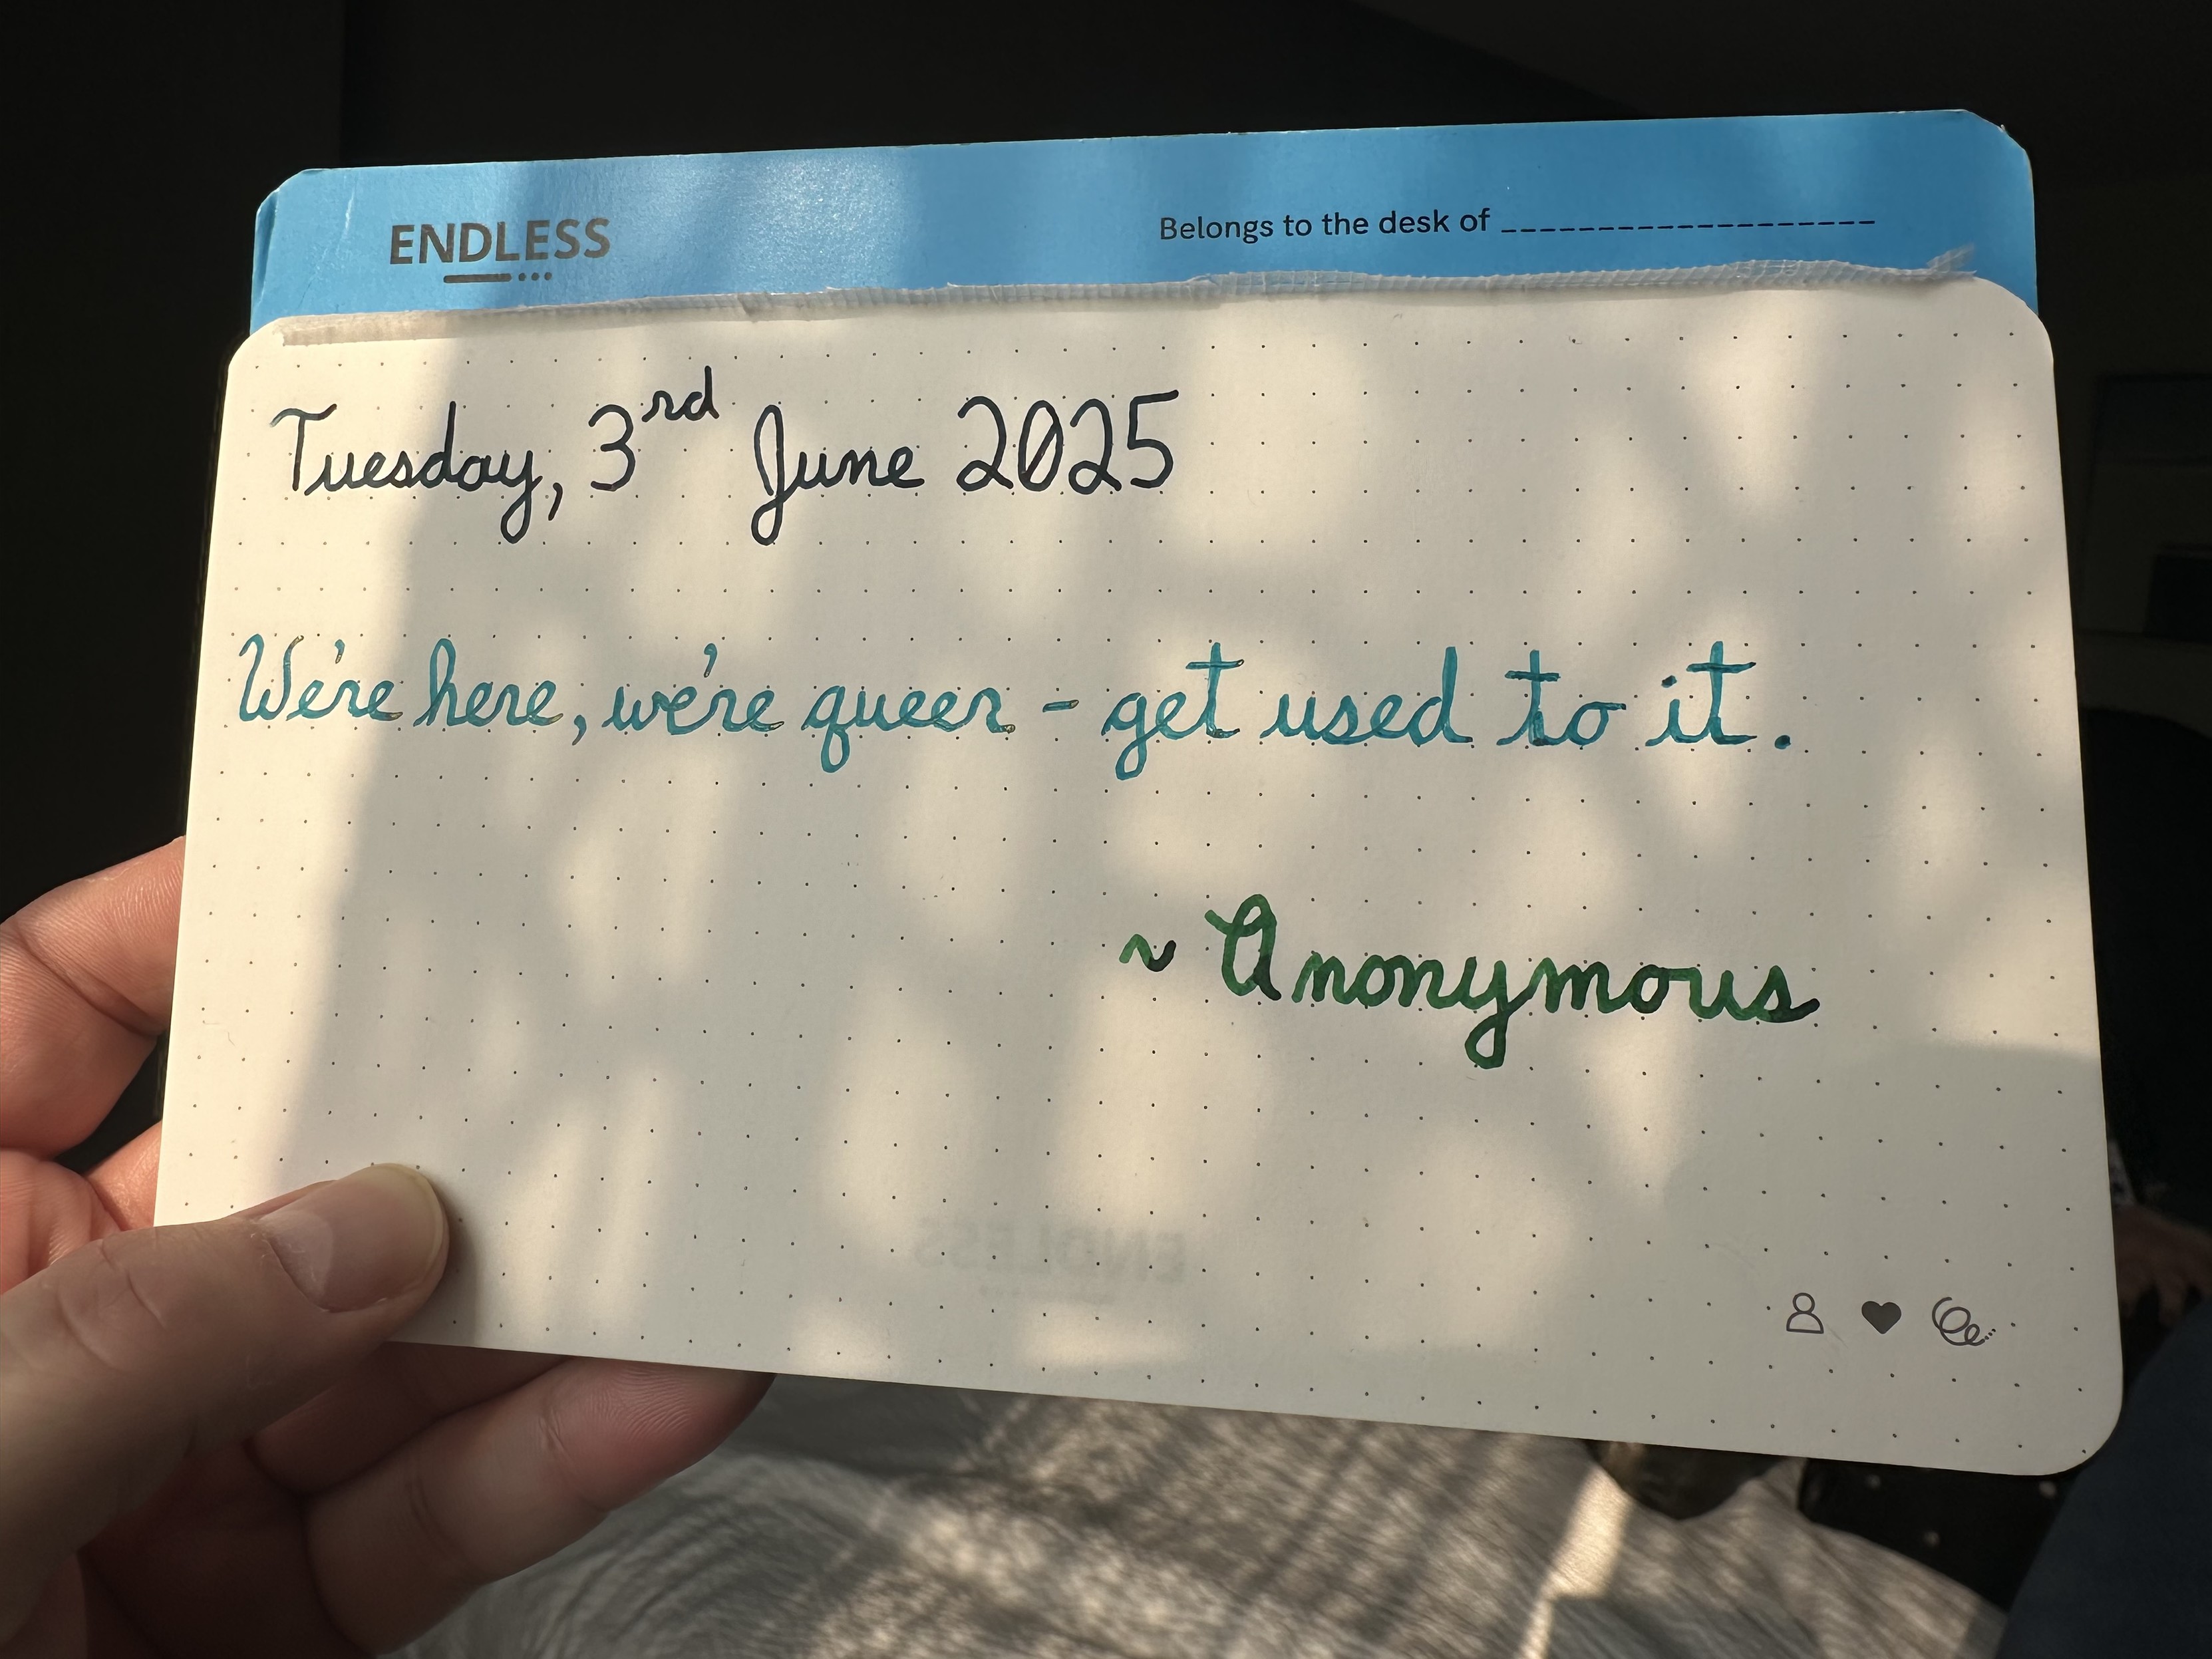 ENDLESS
Belongs to the desk of ____________________
Tuesday, 3rd June 2025
We're here, we're queer - get used to it.
~ Anonymous
ENDLESS